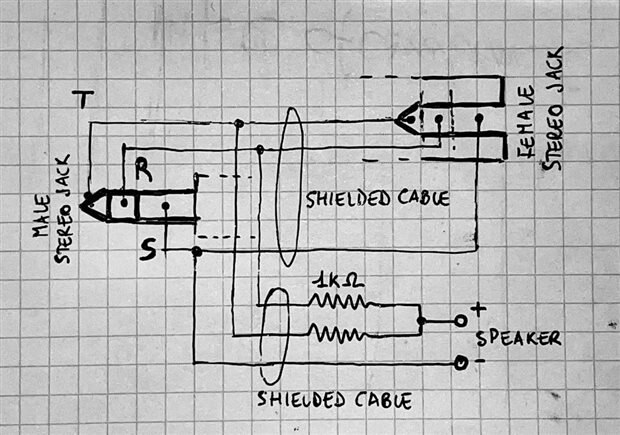 T
FEMALE
STEREO JACK
R
MALE
STEREO JACK
SHIELDED CABLE
S
1KΩ
+
SPEAKER
-
SHIELDED CABLE